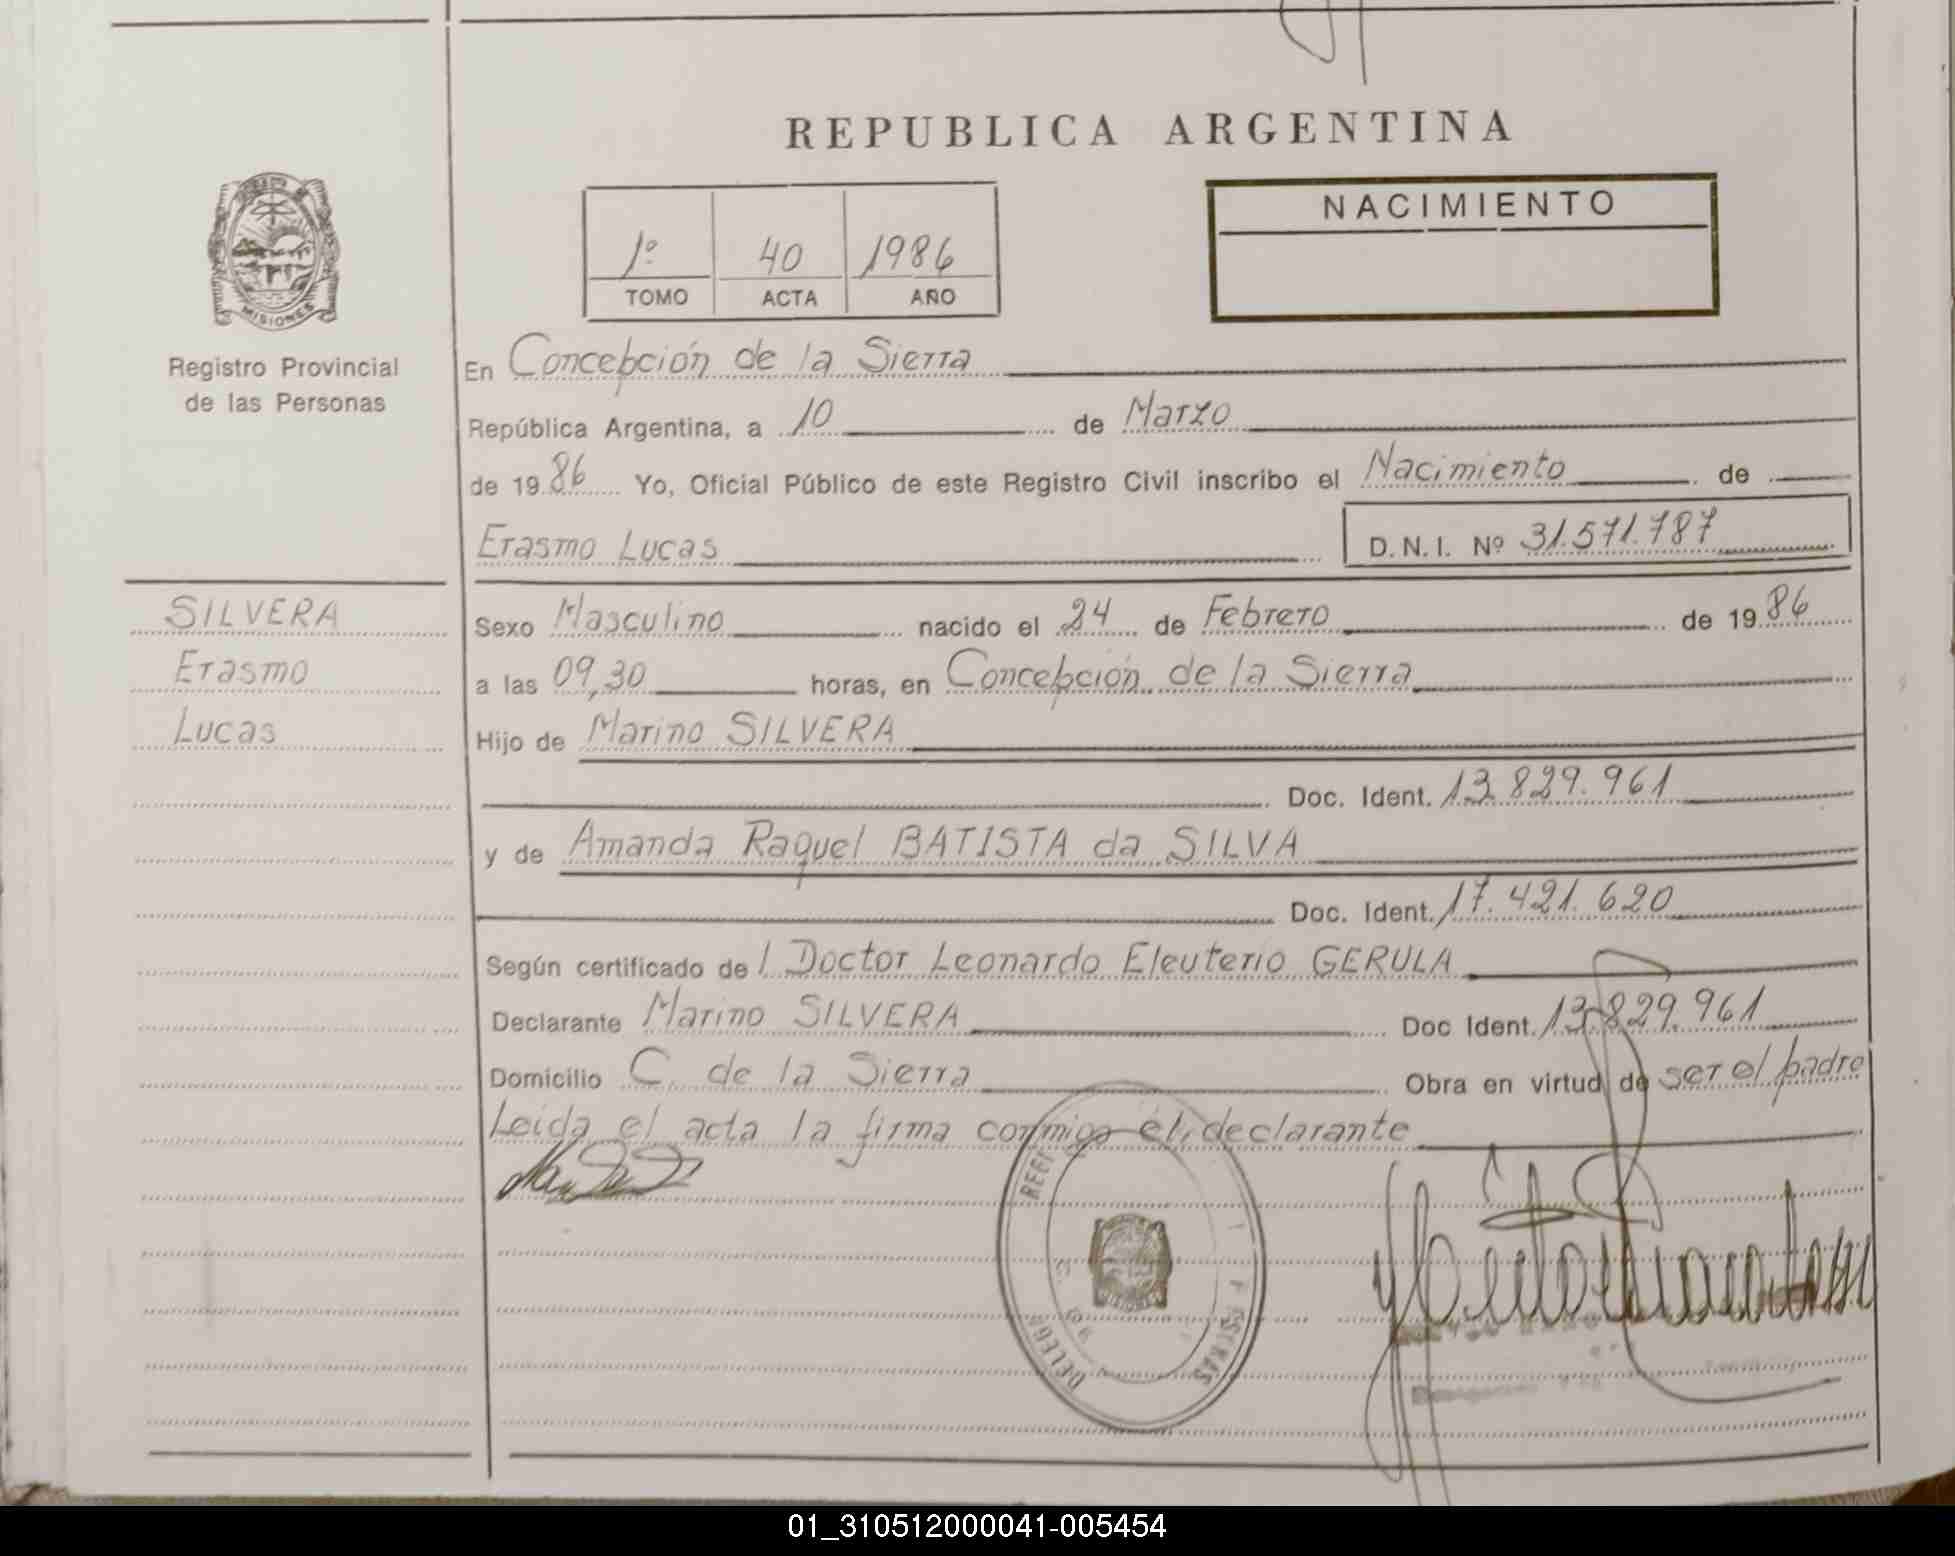 REPUBLICA ARGENTINA
NACIMIENTO
1º 40 1986
TOMO ACTA AÑO
MISIONES
Registro Provincial
de las Personas
En Concepción de la Sierra
República Argentina, a 10 de Marzo
de 1986 Yo, Oficial Público de este Registro Civil inscribo el Nacimiento de
Erasmo Lucas D.N.I. Nº 31.571.787
SILVERA
Erasmo
Lucas
Sexo Masculino nacido el 24 de Febrero de 1986
a las 09,30 horas, en Concepción de la Sierra
Hijo de Marino SILVERA
Doc. Ident. 13.829.961
y de Amanda Raquel BATISTA da SILVA
Doc. Ident. 17.421.620
Según certificado del Doctor Leonardo Eleuterio GERULA
Declarante Marino SILVERA Doc Ident. 13.829.961
Domicilio C. de la Sierra Obra en virtud de ser el padre
Leida el acta la firma conmigo el declarante
01_310512000041-005454